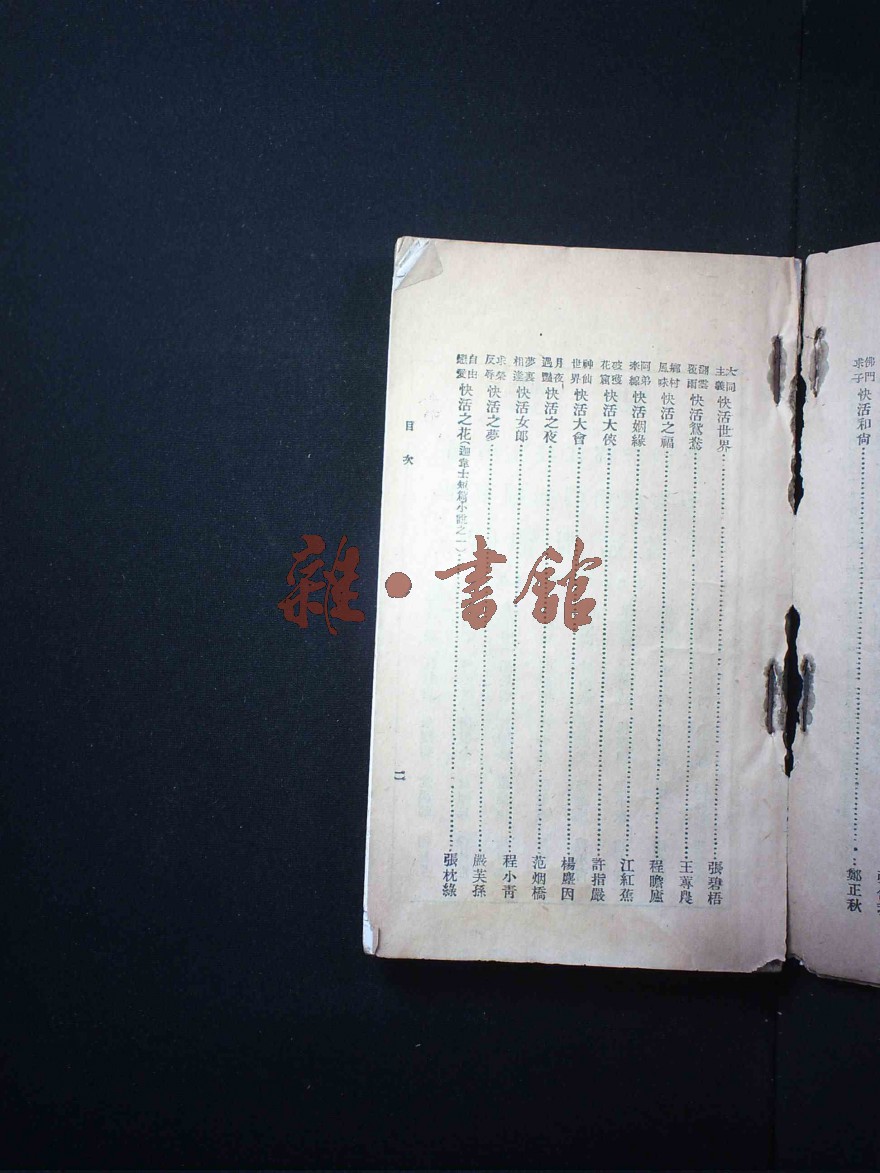 佛門求子快活和尚……鄭正秋
大同主義快活世界……張碧梧
翻雲覆雨快活鴛鴦……王蓴農
鄉村風味快活之福……程瞻廬
阿弟牽線快活姻緣……江紅蕉
破獲花窟快活大俠……許指嚴
神仙世界快活大會……楊塵因
月夜遇豔快活之夜……范烟橋
夢裏相逢快活女郎……程小青
求榮反辱快活之夢……嚴芙孫
自由戀愛快活之花(迦韋士短篇小說之一)……張枕綠
目次 二
雜·書館